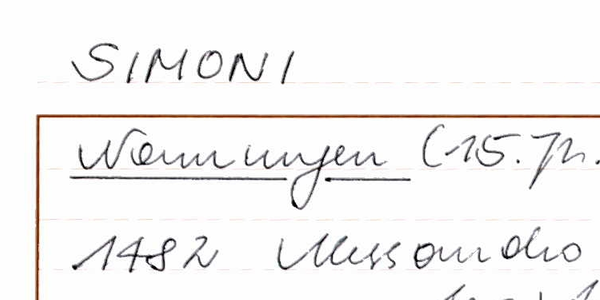 SIMONI
Nennungen (15. Jh.
1482 Alessandro